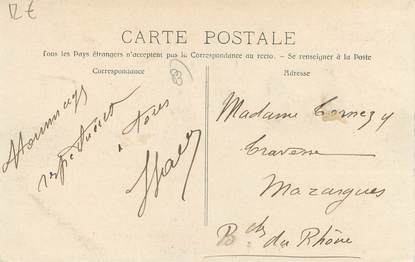 12 €
CARTE POSTALE
Tous les Pays étrangers n'acceptent pas la Correspondance au recto. — Se renseigner à la Poste
Correspondance
Adresse
Hommages
à tous
Madame
Traverse
Mazargues
Bches du Rhône